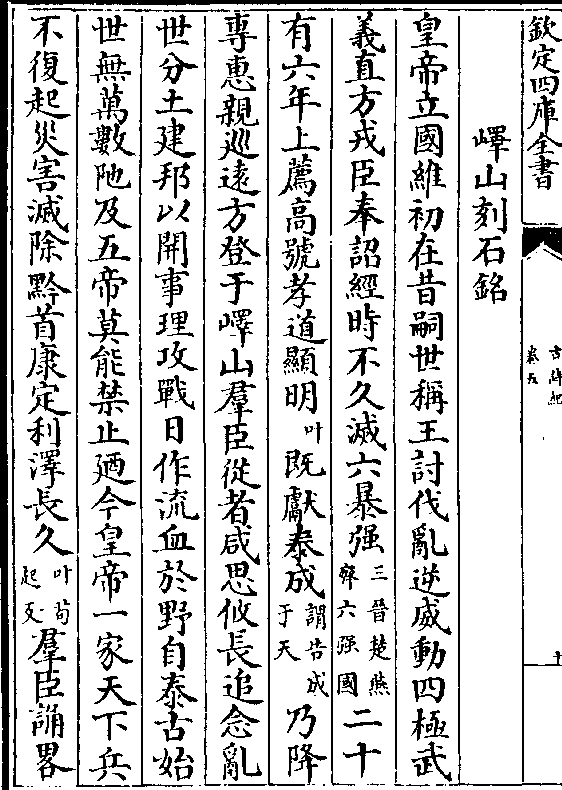 欽定四庫全書
嶧山刻石銘
皇帝立國維初在昔嗣世稱王討伐亂逆威動四極武
義直方戎臣奉詔經時不久滅六暴强三晉楚燕齊六强國二十
有六年上薦高號孝道顯明叶既獻泰成謂告成于天乃降
專惠親巡遠方登于嶧山羣臣從者咸思攸長追念亂
世分土建邦以開事理攻戰日作流血於野自泰古始
世無萬數陁及五帝莫能禁止廼今皇帝一家天下兵
不復起災害滅除黔首康定利澤長久叶苟起反羣臣誦畧